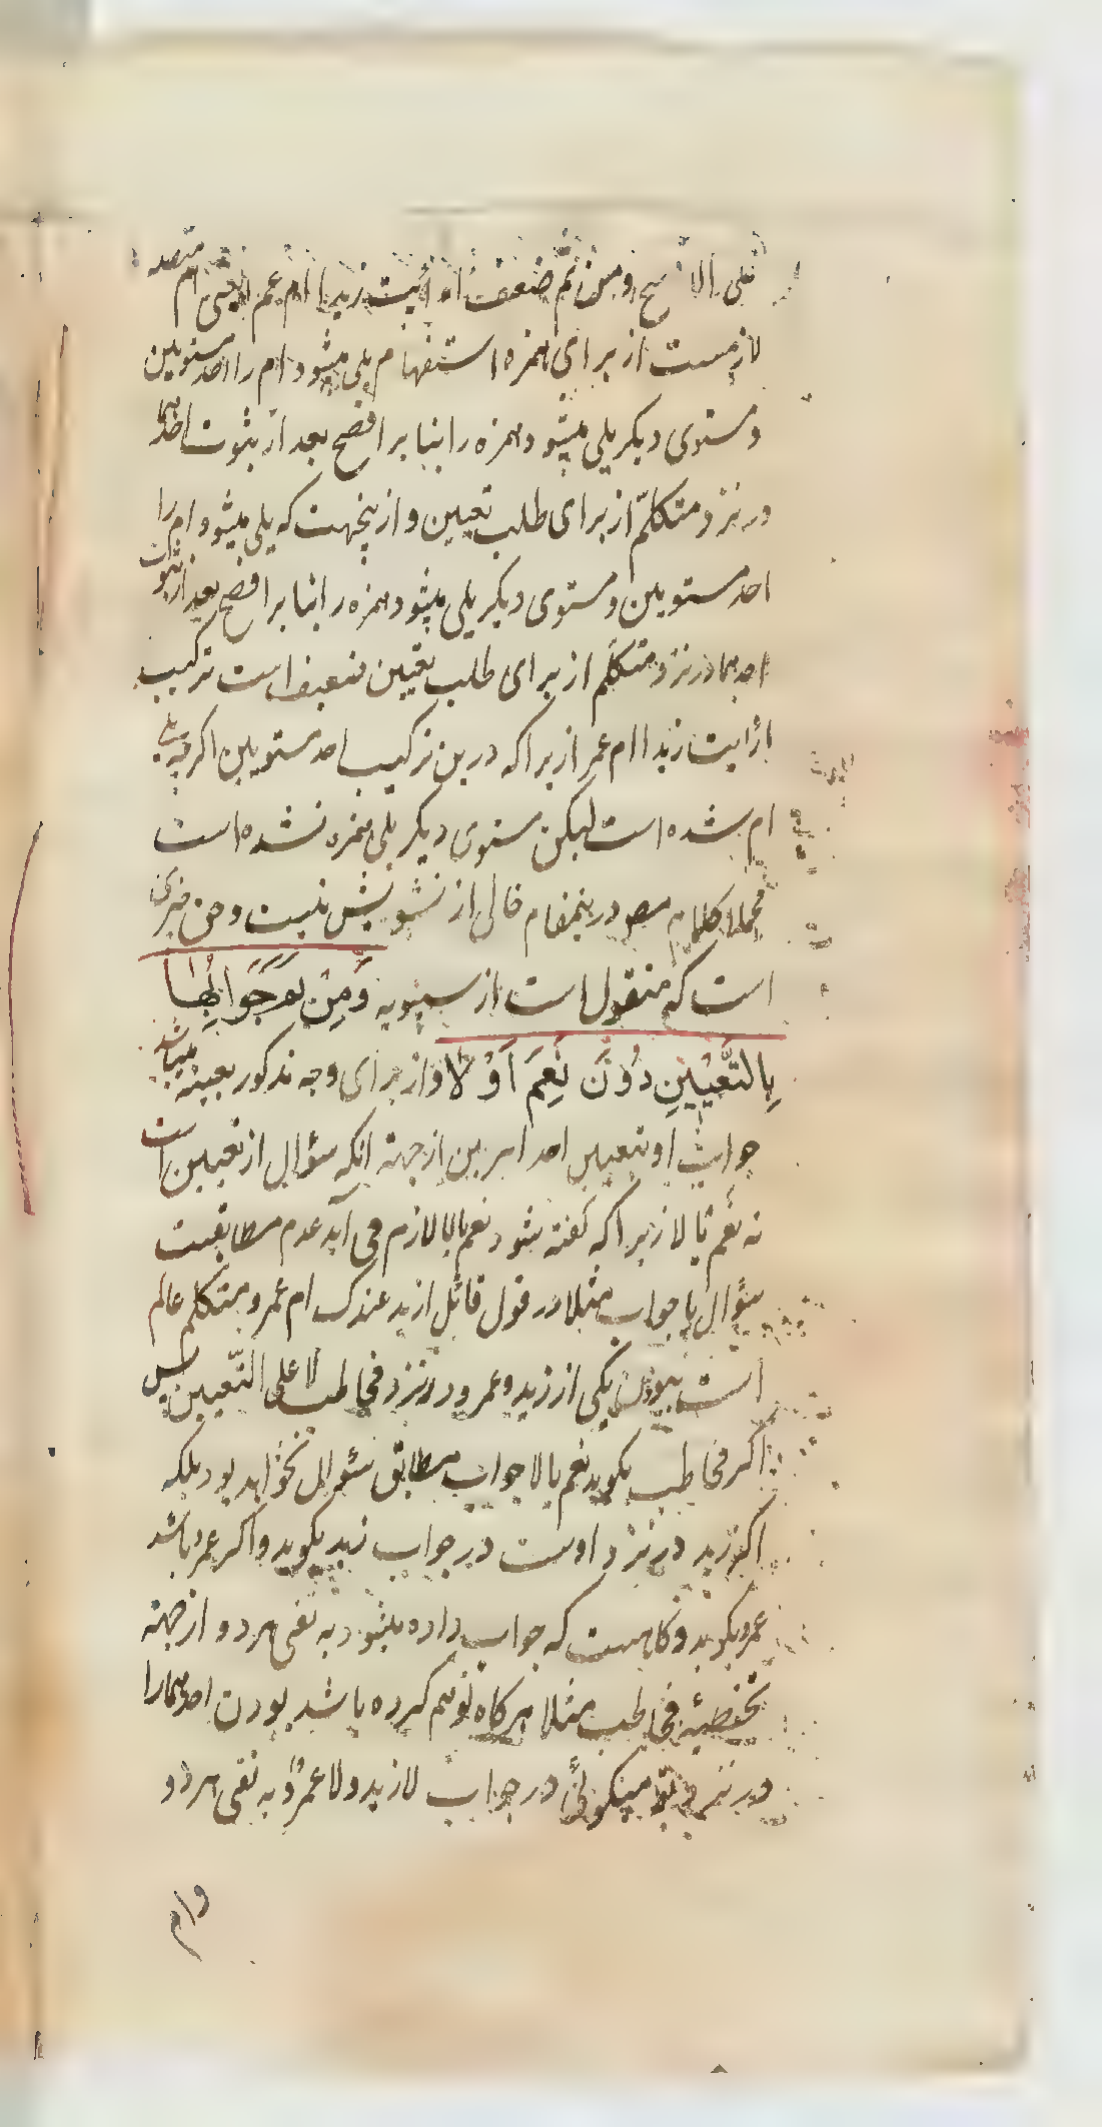 علی الا صح و من ثم ضعف ا رأیت زیدا ام عمرا یعنی ام متصله
لازمست از برای همزه استفهام یلی میشود ام را احد مستویین
و مستوی دیکر یلی میشود همزه را بنا بر افصح بعد از ثبوت احدهما
در نزد متکلّم از برای طلب تعیین و ازینجهت که یلی میشود ام را
احد مستویین و مستوی دیکر یلی میشود همزه را بنا بر افصح بعد از ثبوت
احدهما در نزد متکلّم از برای طلب تعیین ضعیف است ترکیب
ارایت زیدا ام عمر از برا که درین ترکیب احد مستویین اکرچه یلی
ام شده است لیکن مستوی دیکر یلی همزه نشده است
مجملا کلام مصه درینمقام خالی از تشویش نیست و حق چیزی
است که منقول است از سیبویه وَمِنْ ثَمَّ جَوَابُهَا
بِالتَّعْیِیْنِ دُوْنَ نَعَمْ اَوْ لَا و از برای وجه مذکور بعینه میباشد
جواب او بتعیین احد امرین از جهته انکه سؤال از تعیین است
نه نعم یا لا زیرا که کفته شود نعم یا لا لازم می آید عدم مطابقت
سؤال با جواب مثلا در قول قائل ازید عندک ام عمرو متکلم عالم
است ببودن یکی از زید و عمرو در نزد مخاطب لا علی التّعیین پس
اکر مخاطب بکوید نعم یا لا جواب مطابق سئوال نخواهد بود بلکه
اکر زید در نزد اوست در جواب زید بکوید و اکر عمرو باشد
عمرو بکوید و کاهست که جواب داده میشود به نفی هر دو از جهته
تخطیئه مخاطب مثلا هرکاه توهم کرده باشد بودن احدهما را
در نزد تو میکوئی در جواب لا زید و لا عمرو به نفی هر دو
و ام